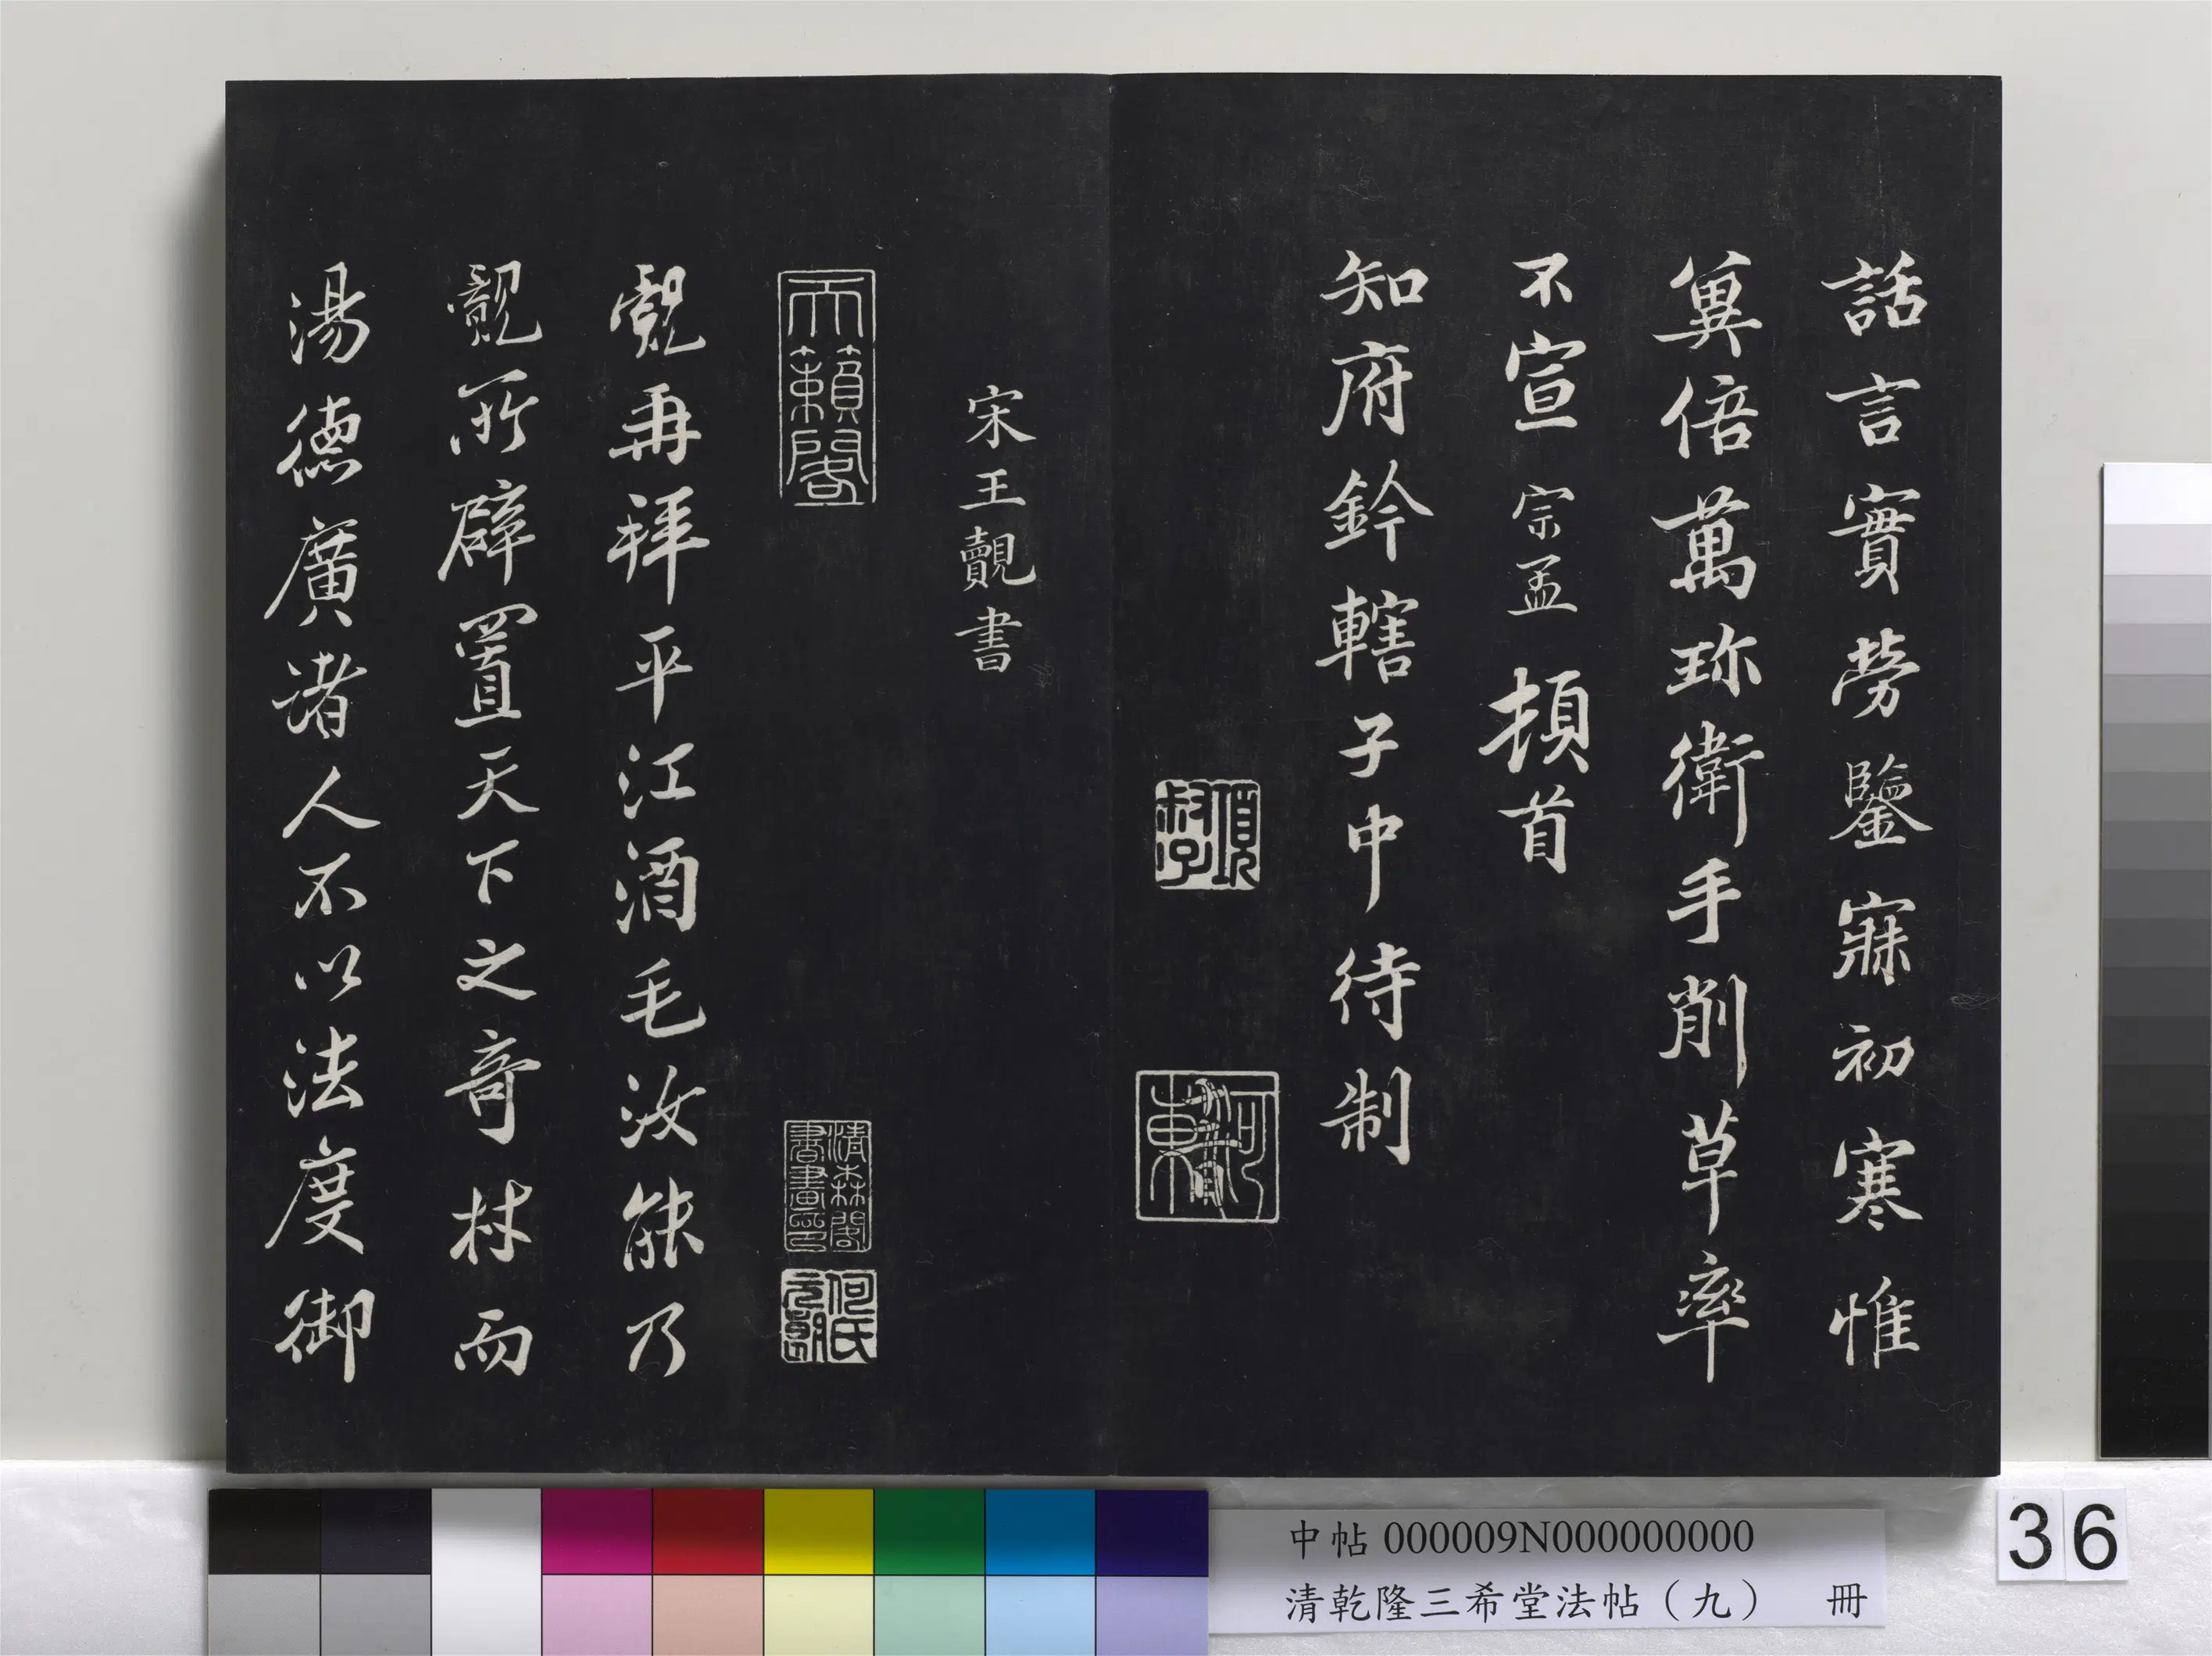 話言實勞鑒寐初寒惟
冀倍萬珎衛手削草率
不宣宗孟頓首
知府鈐轄子中待制
項叔子
河東
宋王觌書
天籟閣
清森閣書畫印
何氏元朗
觌再拜平江酒毛汝能乃
觌所辟置天下之奇材而
湯德廣諸人不以法度御
中帖 000009N000000000
清乾隆三希堂法帖（九） 冊
36